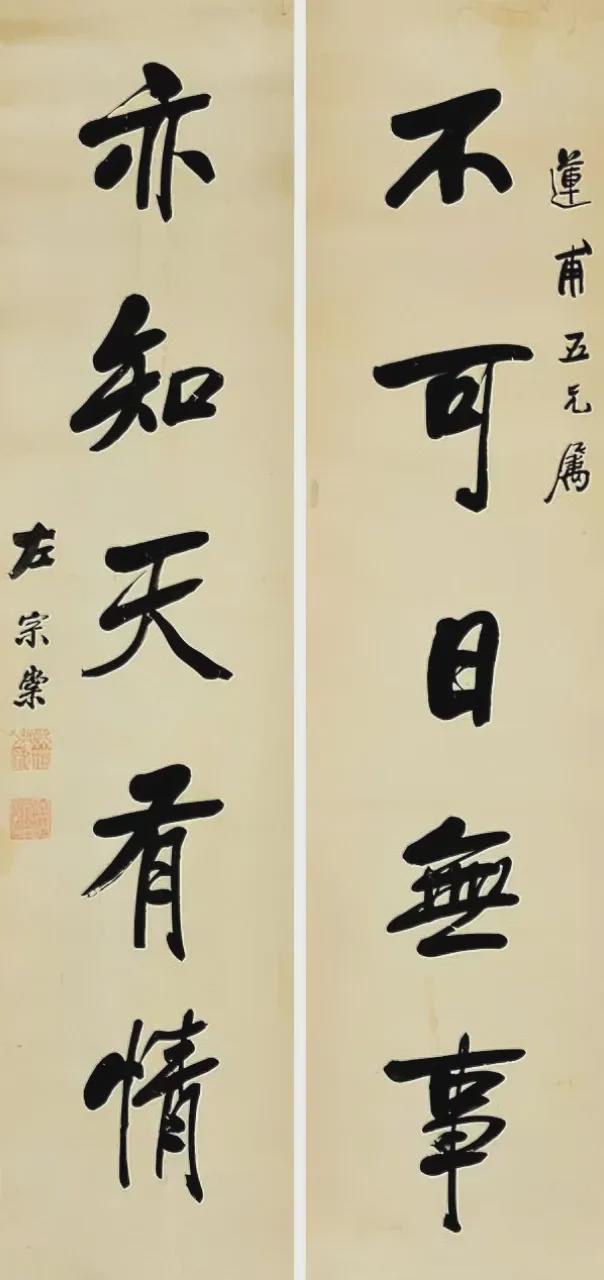 蓮甫五兄屬
不可日無事
亦知天有情
左宗棠